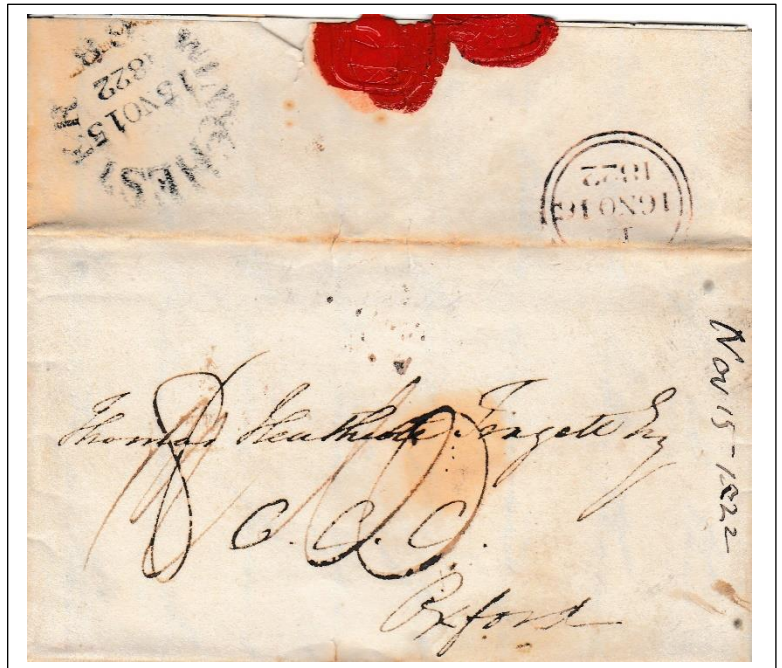 WINCHESTER
15 NO 15
1822
1
16 NO 16
1822
Nov 15 - 1822
Thomas Heathcote Esq
C. C. C.
Oxford